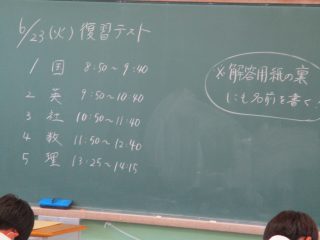 6/23(火)復習テスト
1 国 8:50～9:40
2 英 9:50～10:40
3 社 10:50～11:40
4 数 11:50～12:40
5 理 13:25～14:15
※解答用紙の裏
にも名前を書く